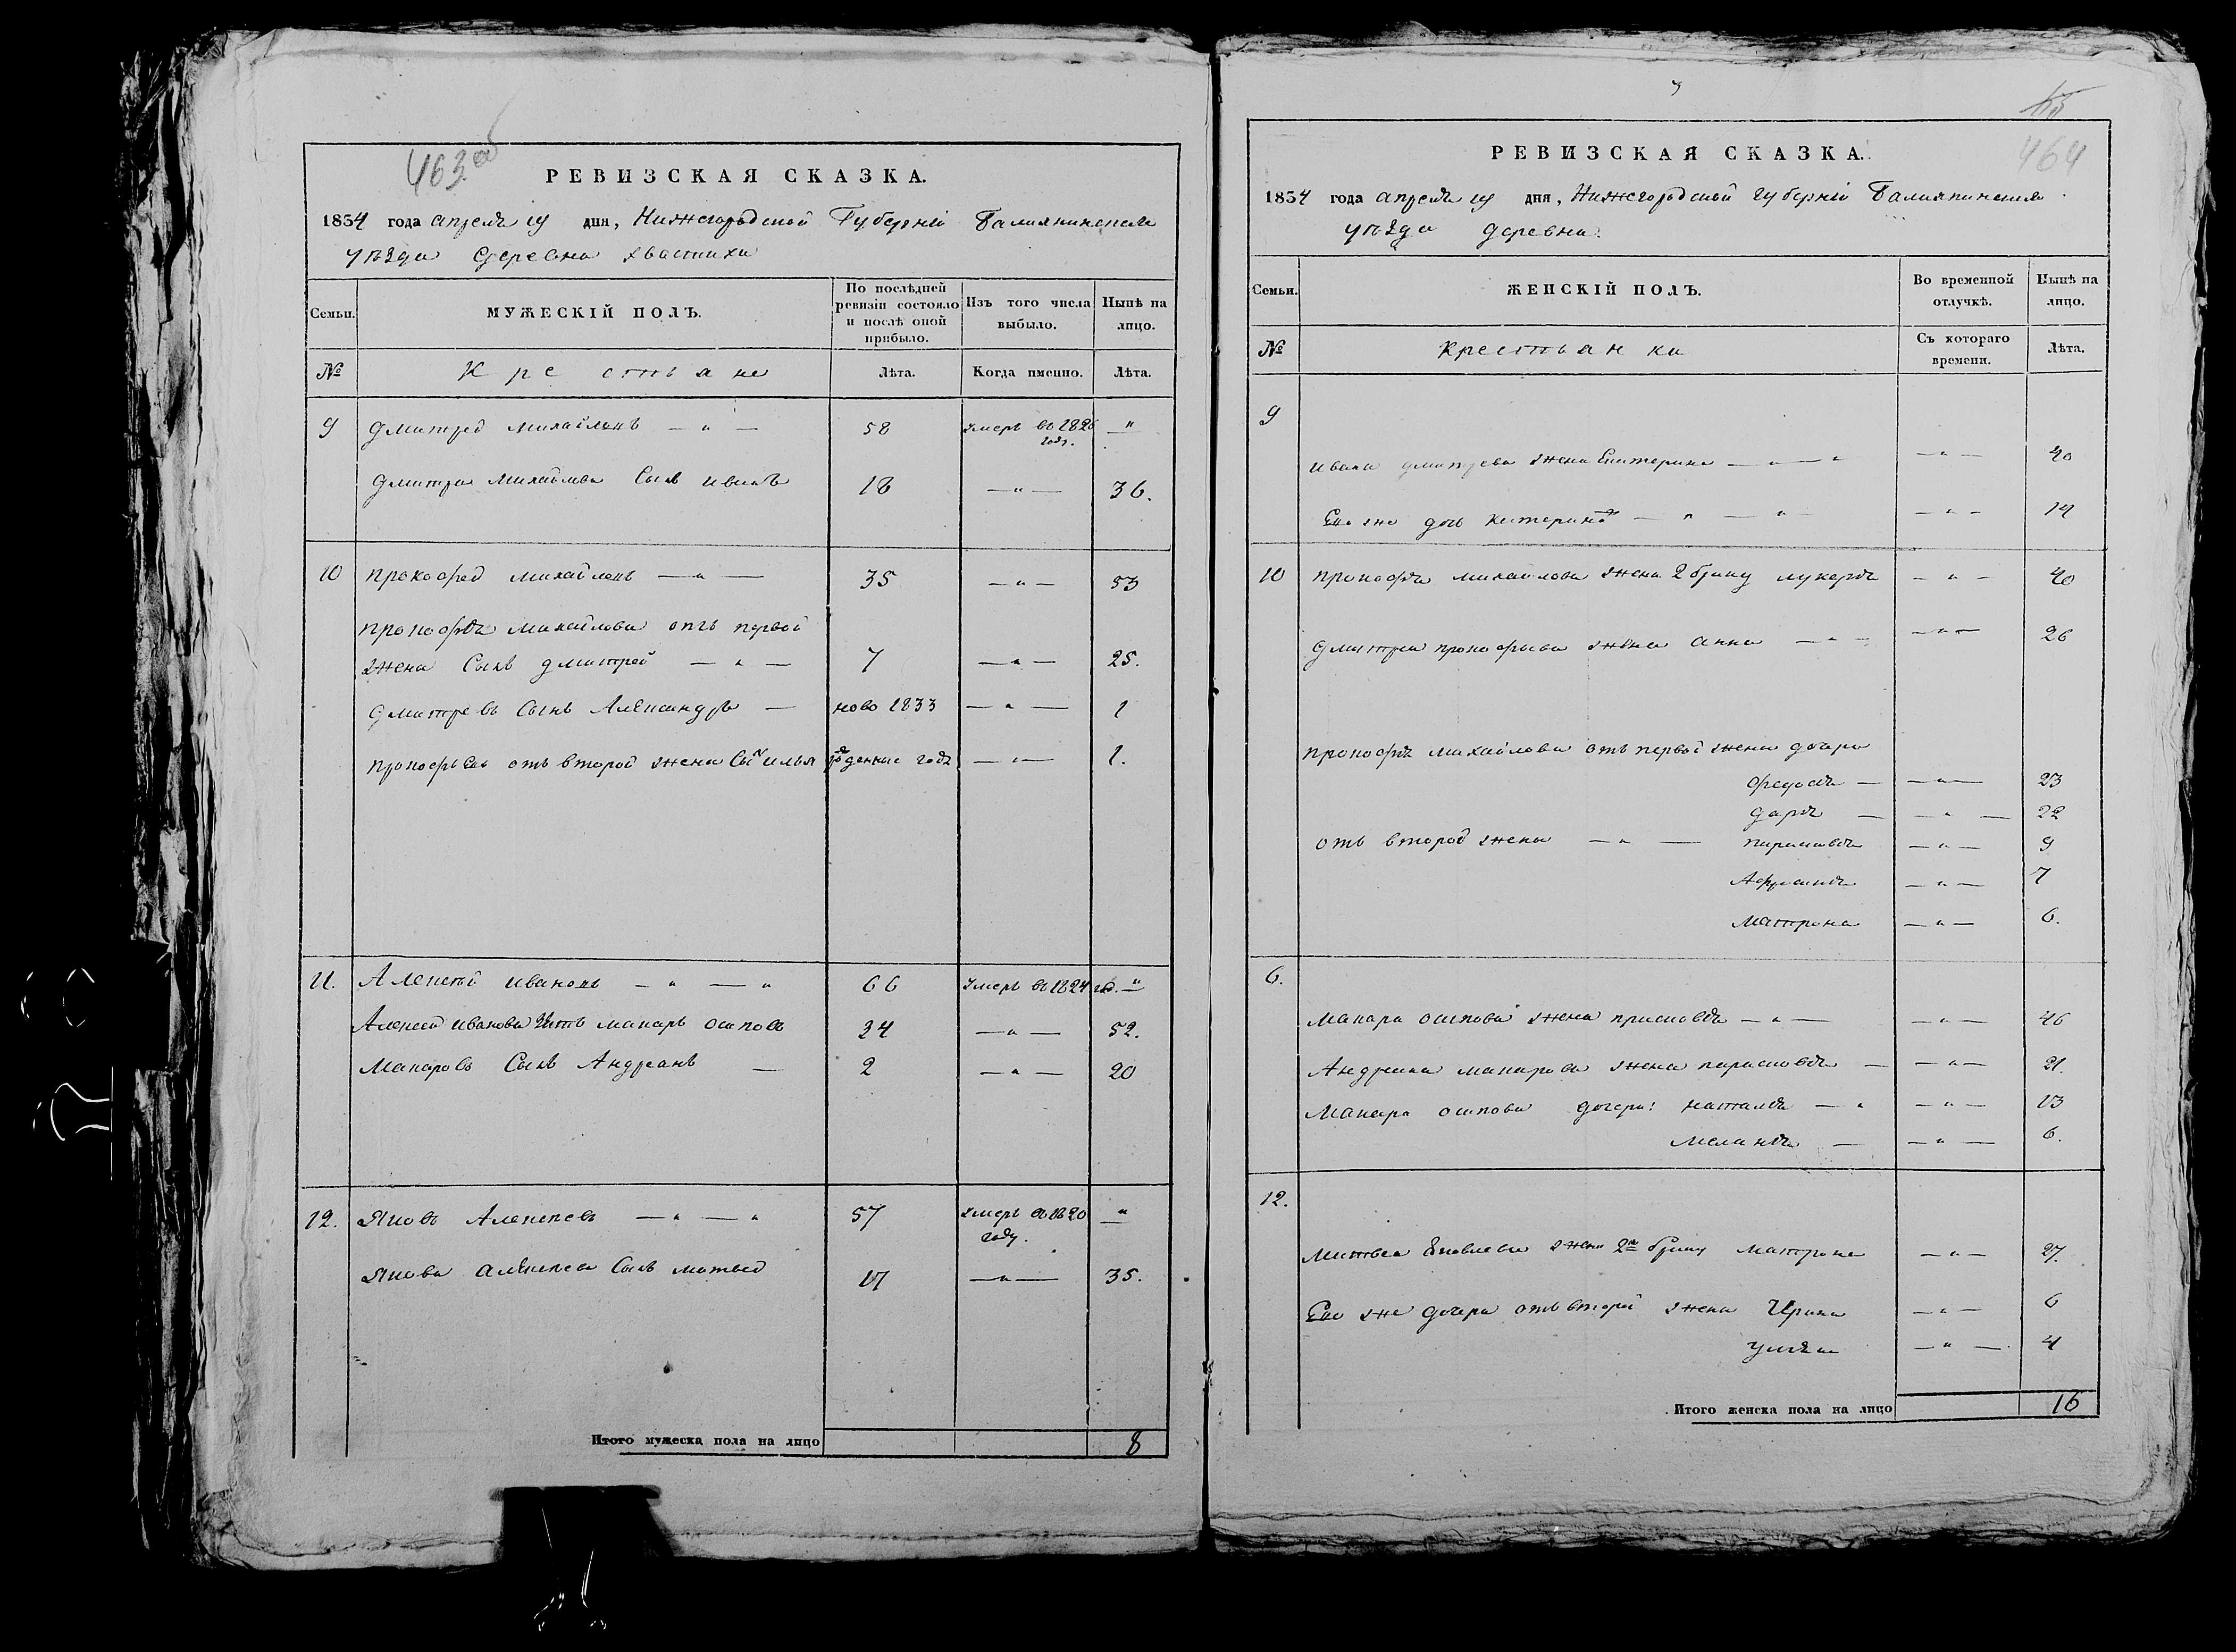 463 об
РЕВИЗСКАЯ СКАЗКА.
1834 года апреля 19 дня, Нижегородской Губерніи Балахнинскаго
уезда деревни Хвастихи
Семьи. МУЖЕСКІЙ ПОЛЪ. По послѣдней ревизіи состояло и послѣ оной прибыло. Изъ того числа выбыло. Нынѣ на лицо.
№ Крестьяне Лѣта. Когда именно. Лѣта.
9 Дмитрей Михайловъ — " — 58 умеръ въ 1826 году. "
Дмитрия Михайлова Сынъ Иванъ 18 — " — 36.
10 Прокофей Михайловъ — " — 35 — " — 53
Прокофья Михайлова отъ первой
жены Сынъ Дмитрей — " — 7 — " — 25.
Дмитревъ Сынъ Александръ — ново 1833 — " — 1
Прокофьева отъ второй жены Сынъ Илья рожденные годе — " — 1.
11. Алексей Ивановъ — " — " 66 умеръ въ 1824 год. "
Алексея Иванова Зять Макаръ Осиповъ 34 — " — 52.
Макаровъ Сынъ Андреанъ — 2 — " — 20
12. Яковъ Алексеевъ — " — " 57 умеръ въ 1820 году. "
Якова Алексеева Сынъ Матвей 17 — " — 35.
Итого мужеска пола на лицо 8
464
РЕВИЗСКАЯ СКАЗКА.
1834 года апреля 19 дня, Нижегородской губерніи Балахнинскаго
уезда деревни.
Семьи. ЖЕНСКІЙ ПОЛЪ. Во временной отлучкѣ. Нынѣ на лицо.
№ Крестьянки Съ котораго времени. Лѣта.
9
Ивана Дмитрева жена Екатерина — " — " — " — 40
Ево же дочь Катерина — " — " — " — 14
10 Прокофья Михайлова жена 2 браку Лукерья — " — 40
Дмитрея Прокофьева жена Анна — " — — " — 26
Прокофья Михайлова отъ первой жены дочери
Федосья — — " — 23
Дарья — — " — 22
отъ второй жены — " — Парасковья — " — 9
Афросинья — " — 7
Матрона — " — 6.
6.
Макара Осипова жена Прасковья — " — — " — 46
Андреяна Макарова жена Парасковья — — " — 21.
Макара Осипова дочери: Наталья — " — " — 13
Меланья — — " — 6.
12.
Матвея Яковлева жена 2го браку Матрона — " — 27.
Ево же дочери отъ второй жены Ирина — " — 6
Ульяна — " — 4
Итого женска пола на лицо 16